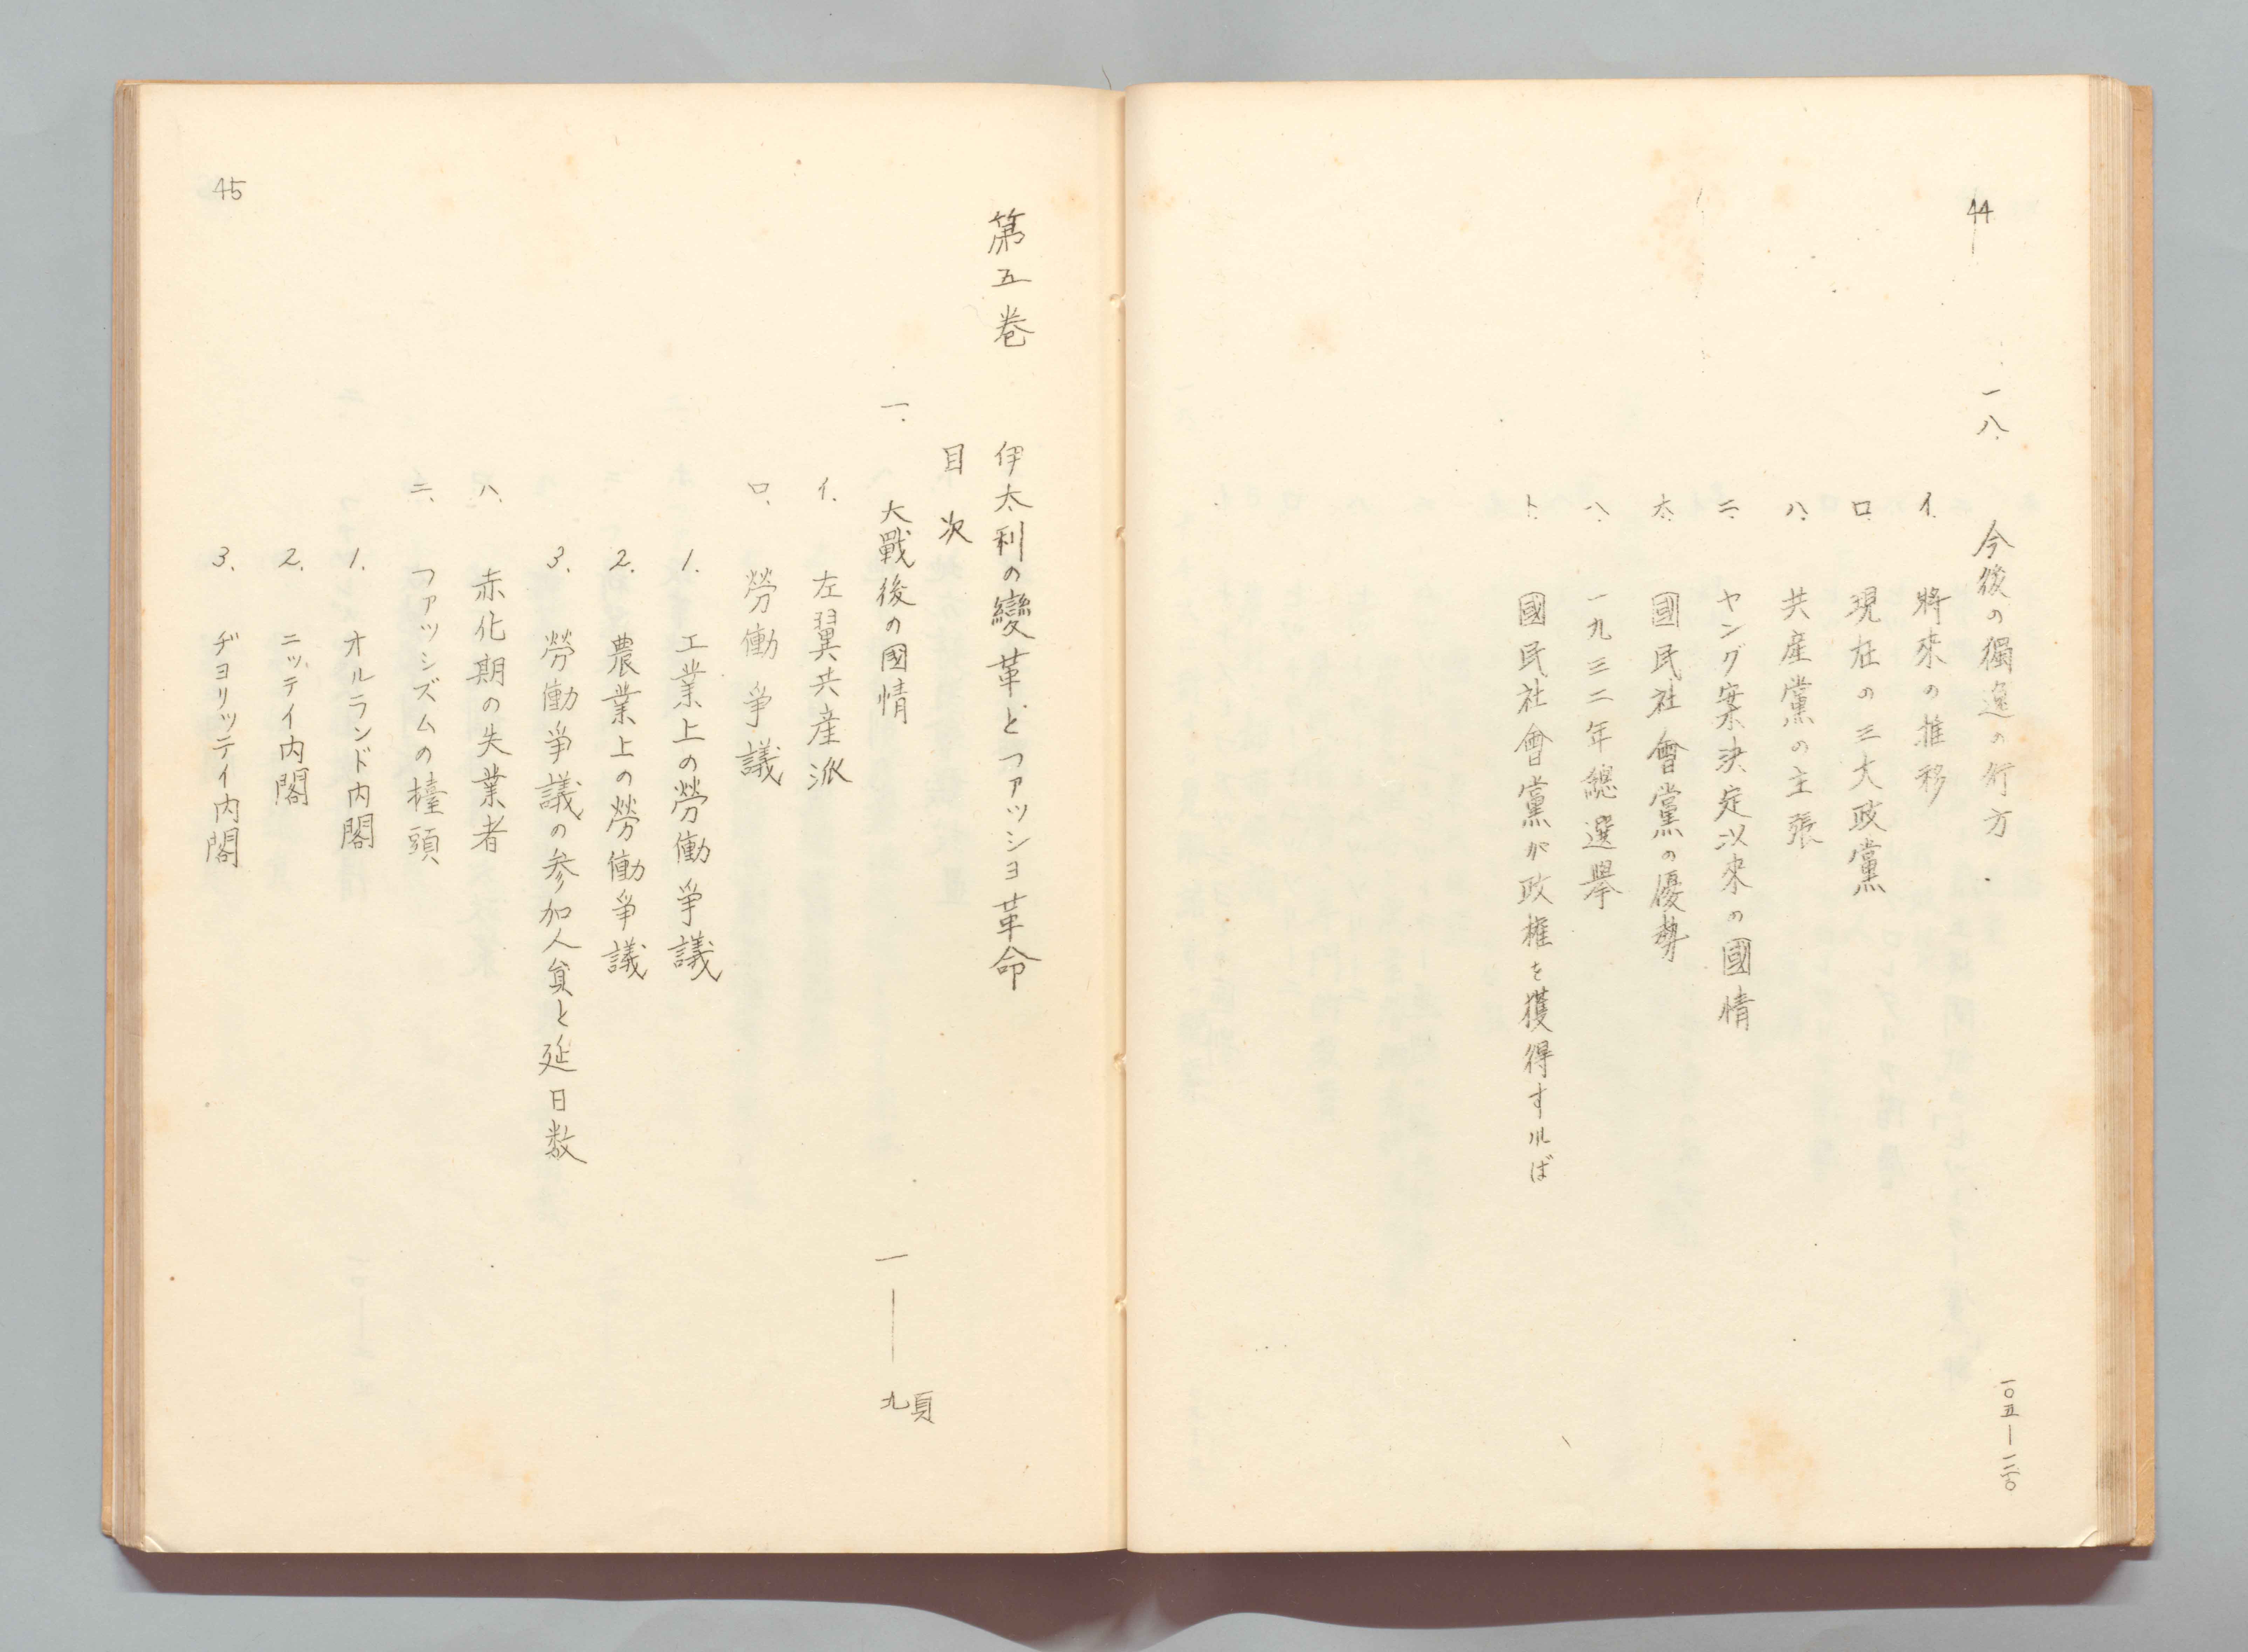 44
一八、 今後の獨逸の行方 一〇五―一二〇
イ、 將來の推移
ロ、 現在の三大政黨
ハ、 共産黨の主張
ニ、 ヤング案決定以來の國情
ホ、 國民社會黨の優勢
ヘ、 一九三二年總選擧
ト、 國民社會黨が政権を獲得すれば
第五巻 伊太利の變革とファッショ革命
目次
一、 大戰後の國情 一―九頁
イ、 左翼共産派
ロ、 勞働爭議
1. 工業上の勞働爭議
2. 農業上の勞働爭議
3. 勞働爭議の参加人員と延日数
ハ、 赤化期の失業者
ニ、 ファッシズムの擡頭
1. オルランド内閣
2. ニッティ内閣
3. ヂョリッティ内閣
45